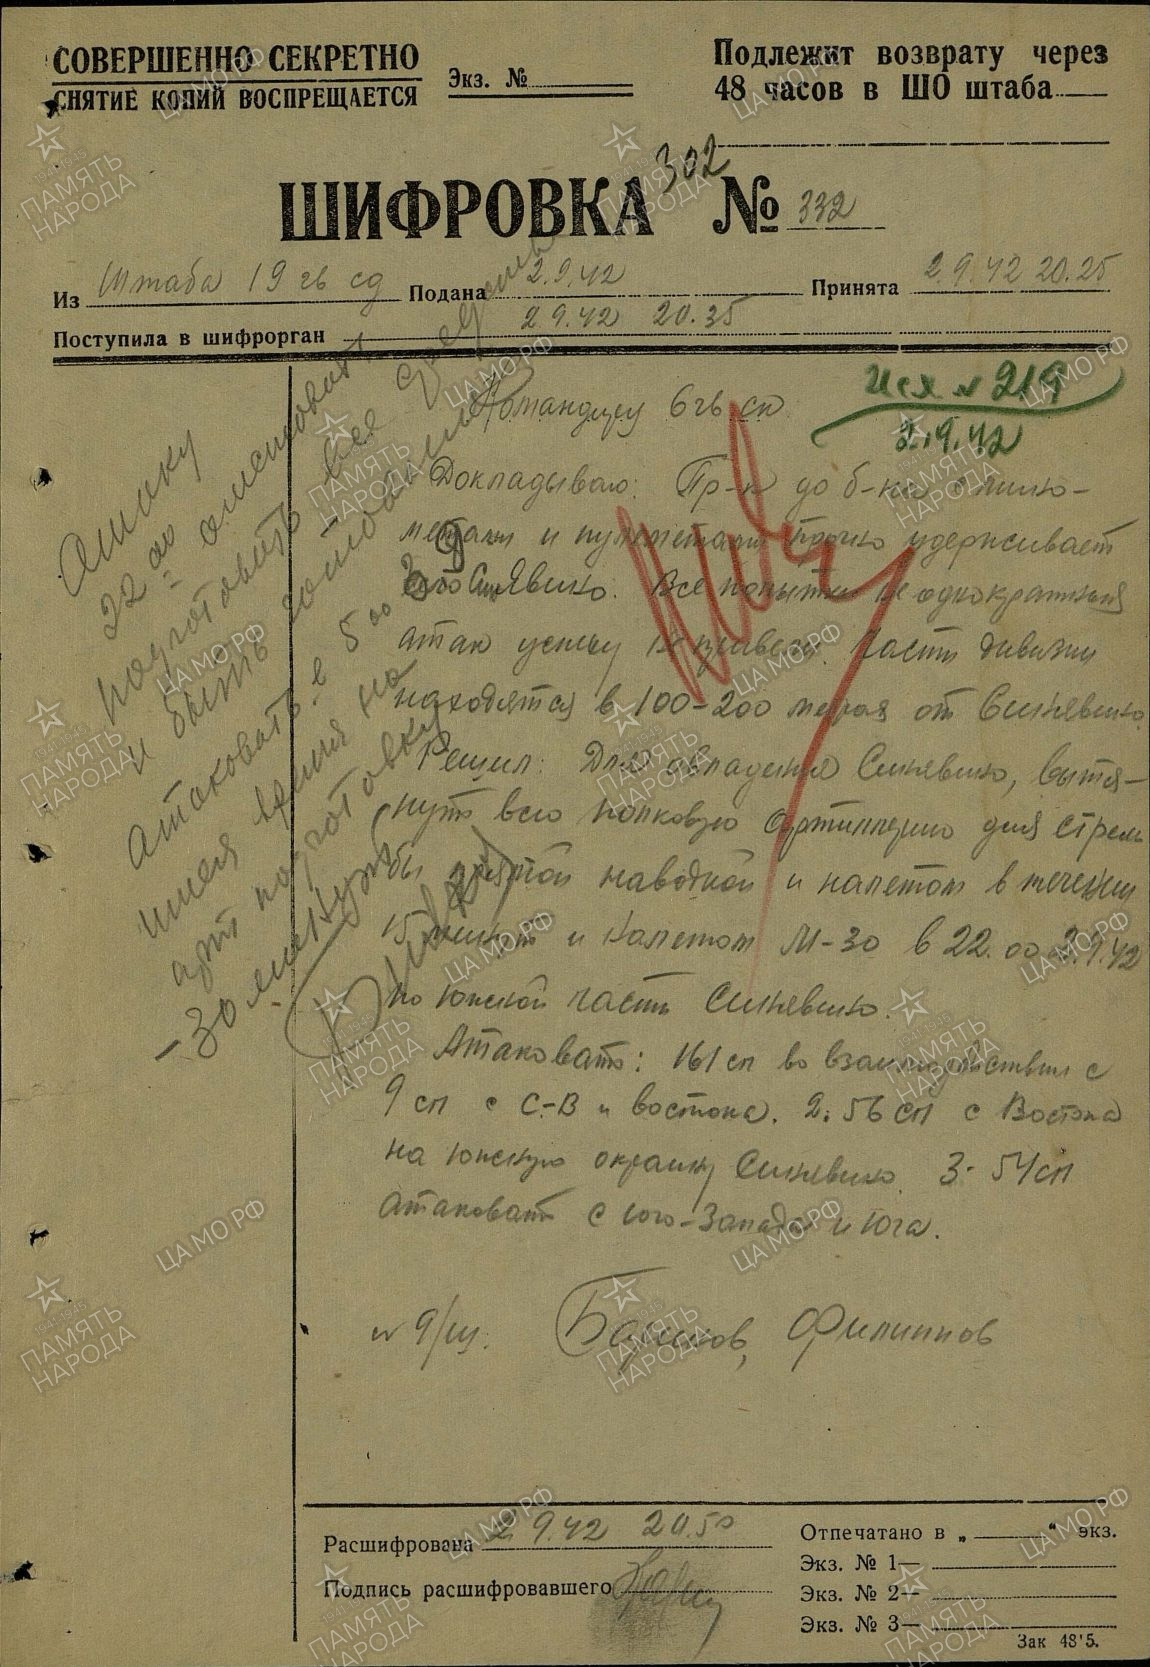 СОВЕРШЕННО СЕКРЕТНО
СНЯТИЕ КОПИЙ ВОСПРЕЩАЕТСЯ
Экз. №
Подлежит возврату через
48 часов в ШО штаба
ШИФРОВКА 302 № 332
Из Штаба 19 гв сд Подана 2.9.42 Принята 2.9.42 20.25
Поступила в шифрорган 2 9.42 20.35
Исх № 219
2.9.42
Командиру 6 гв ск
Докладываю: Пр-к до б-на с мино-
метами и пулеметами прочно удерживает
Синявино. Все попытки неоднократных
атак успеху не привели. Части дивизии
находятся в 100-200 метрах от Синявино.
Решил: Для овладения Синявино, вытя-
нуть всю полковую артиллерию для стрель
бы прямой наводкой и налетом в течении
15 минут и налетом М-30 в 22.00 2.9.42
по южной части Синявино.
Атаковать: 161 сп во взаимодействии с
9 сп с С-В и востока. 2. 56 сп с Востока
на южную окраину Синявино. 3- 54 сп
атаковать с юго-запада и юга.
№ 9/ш. Баринов, Филиппов
22 00
подготовить все
и быть готовыми
атаковать в 5 00 3 9
имея время на
арт подготовку
-30 минут
Расшифрована 2 9.42 20.50
Подпись расшифровавшего
Отпечатано в „ “ экз.
Экз. № 1—
Экз. № 2—
Экз. № 3—
Зак 48'5.
ПАМЯТЬ НАРОДА
ЦАМО.РФ